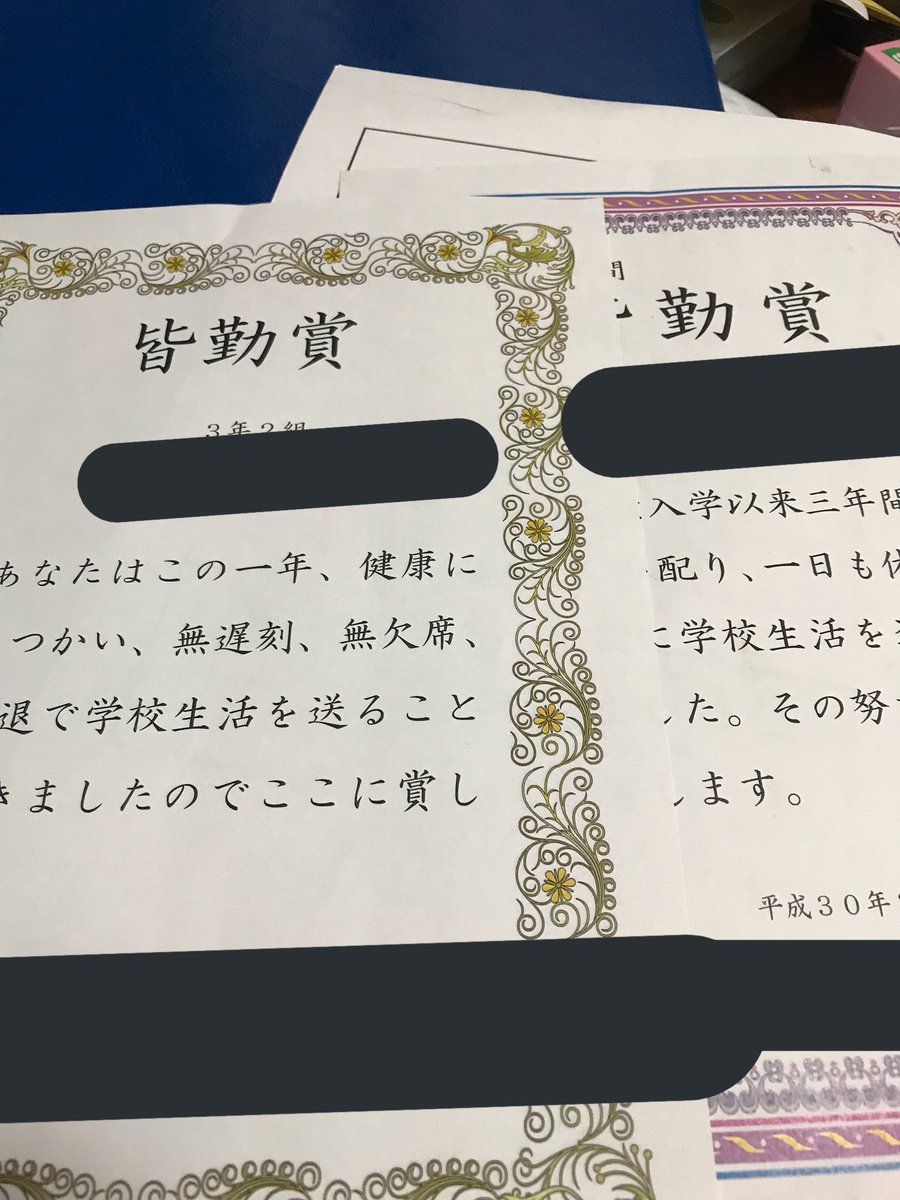 皆勤賞
3年2組
あなたはこの一年、健康に
つかい、無遅刻、無欠席、
退で学校生活を送ること
きましたのでここに賞し
間
勤賞
入学以来三年間
配り、一日も休
に学校生活を
した。その努
します。
平成30年